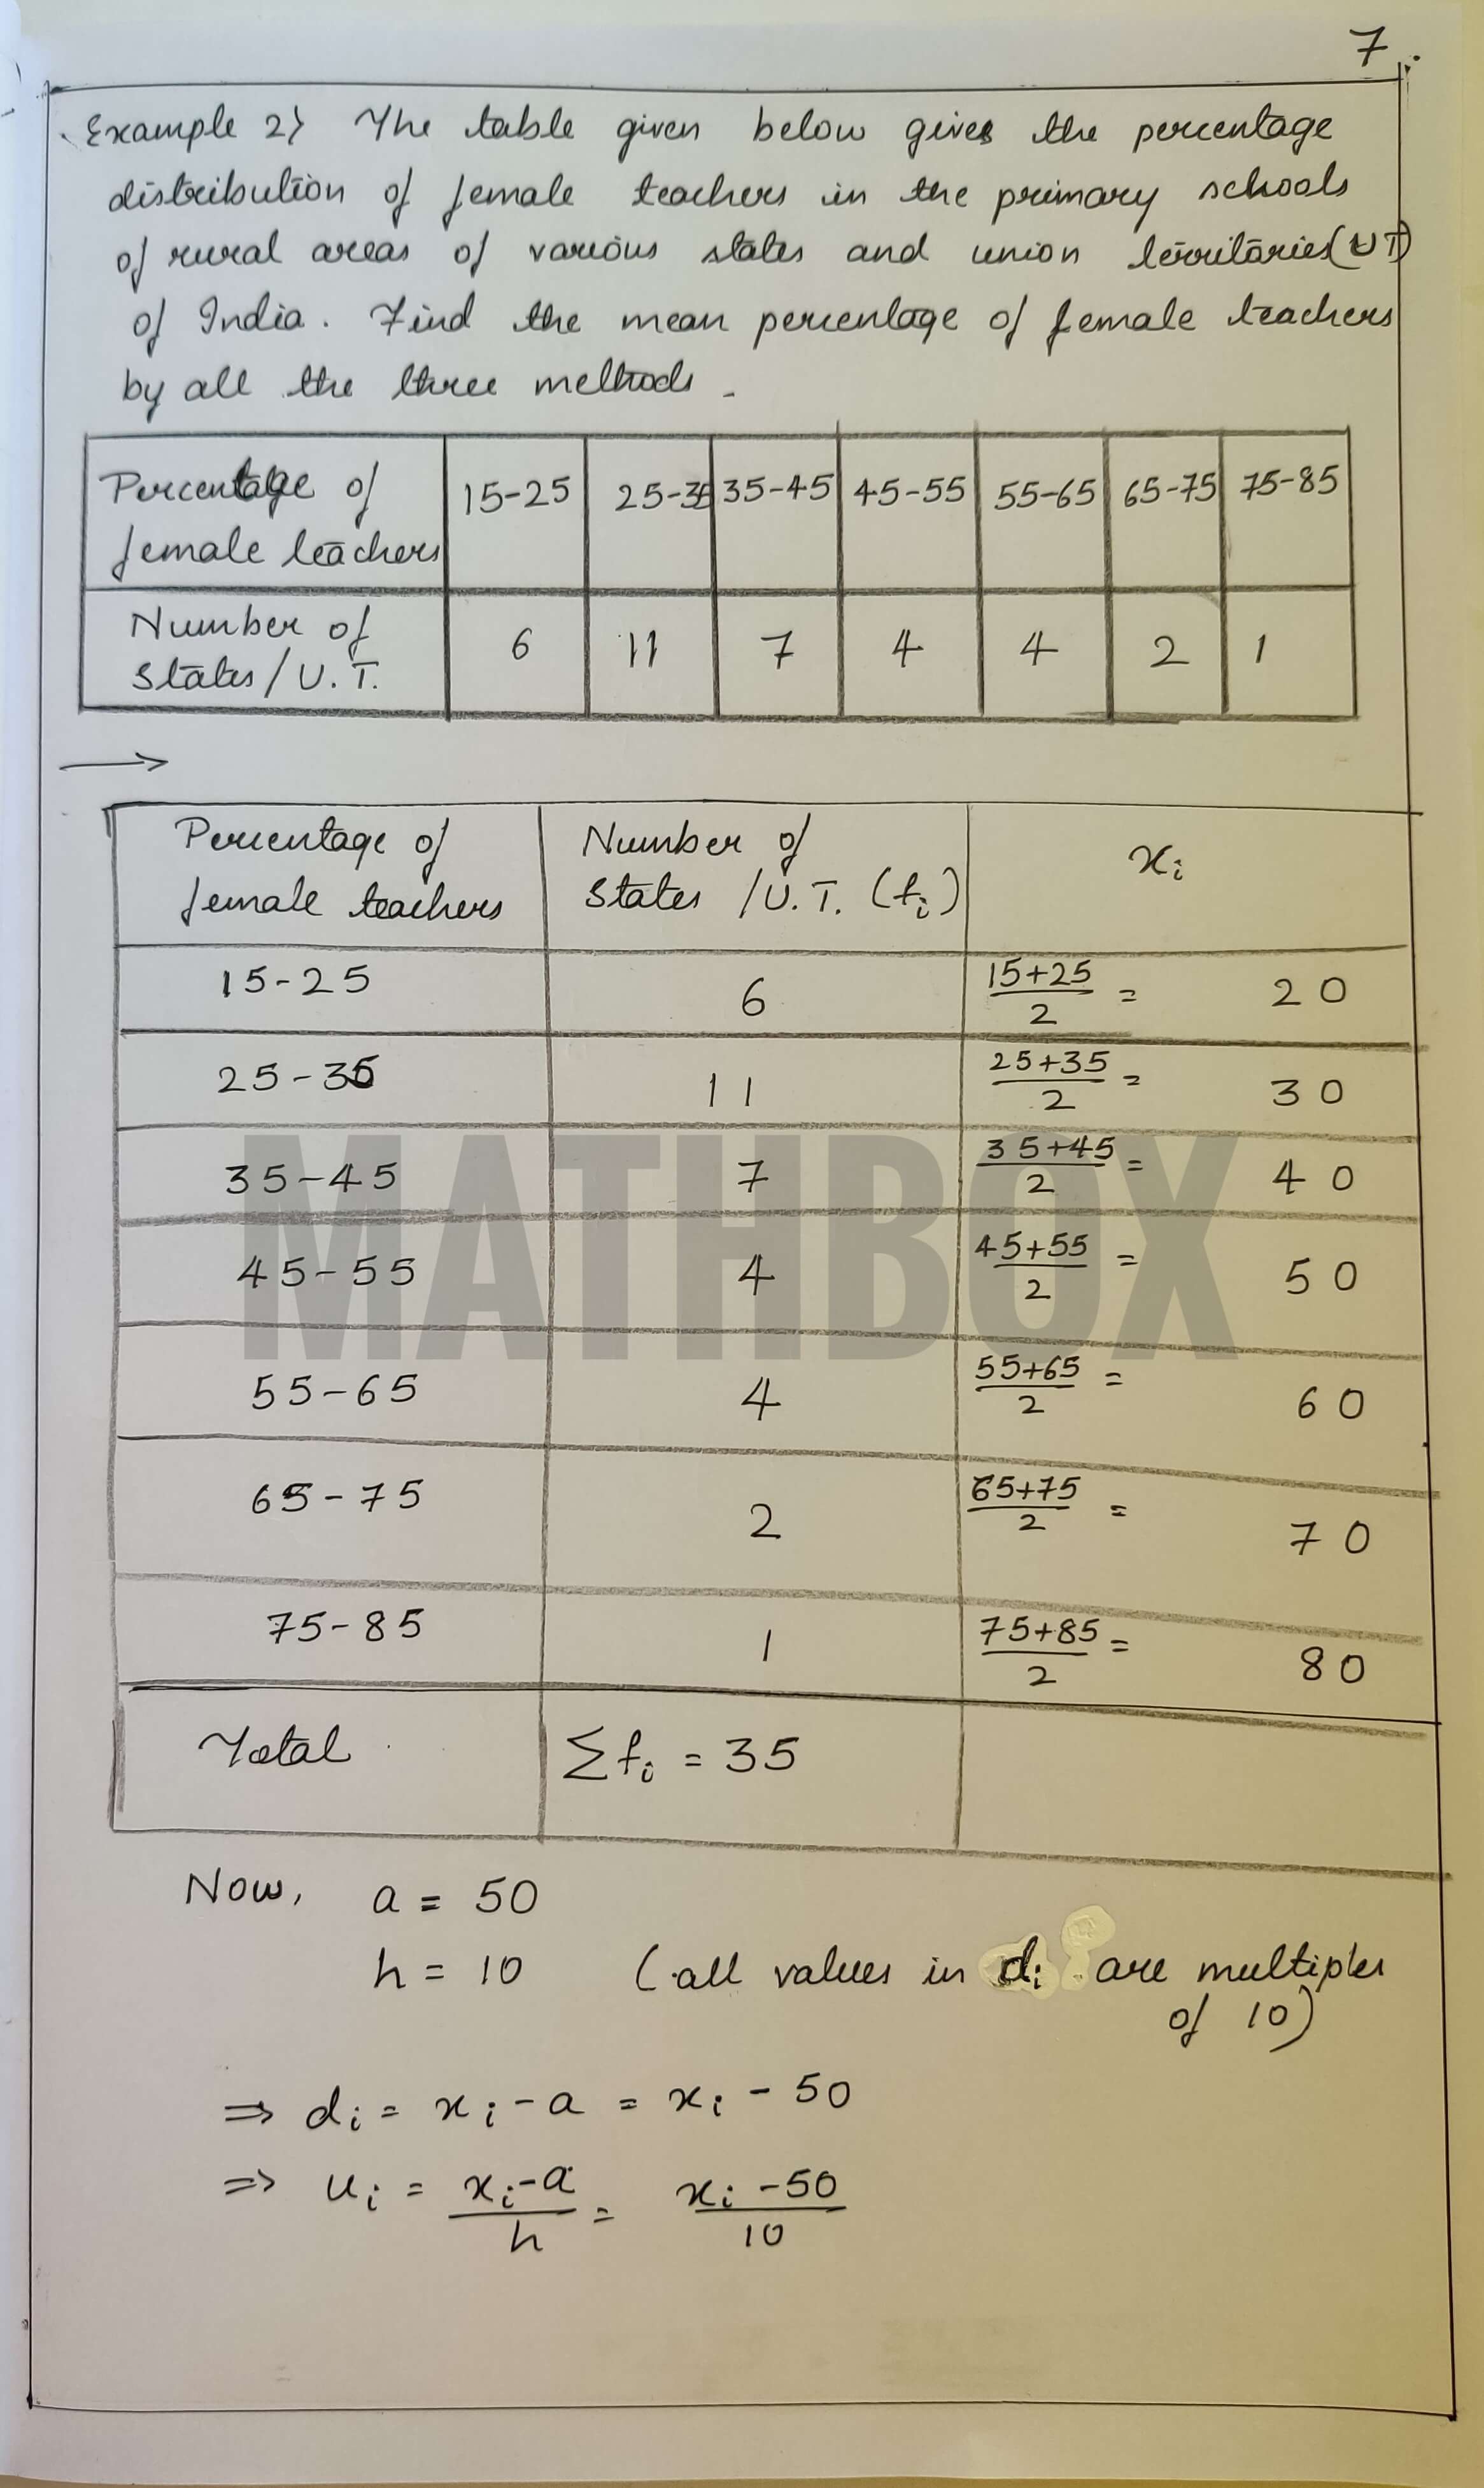 7.
Example 2> The table given below gives the percentage
distribution of female teachers in the primary schools
of rural areas of various states and union territories (UT)
of India. Find the mean percentage of female teachers
by all the three methods.
Percentage of female teachers | 15-25 | 25-35 | 35-45 | 45-55 | 55-65 | 65-75 | 75-85
Number of States/U.T. | 6 | 11 | 7 | 4 | 4 | 2 | 1
→
Percentage of female teachers | Number of States /U.T. (fi) | xi
15-25 | 6 | (15+25)/2 = 20
25-35 | 11 | (25+35)/2 = 30
35-45 | 7 | (35+45)/2 = 40
45-55 | 4 | (45+55)/2 = 50
55-65 | 4 | (55+65)/2 = 60
65-75 | 2 | (65+75)/2 = 70
75-85 | 1 | (75+85)/2 = 80
Total | Σfi = 35
MATHBOX
Now, a = 50
h = 10 (all values in di are multiples
of 10)
⇒ di = xi - a = xi - 50
⇒ ui = (xi - a)/h = (xi - 50)/10